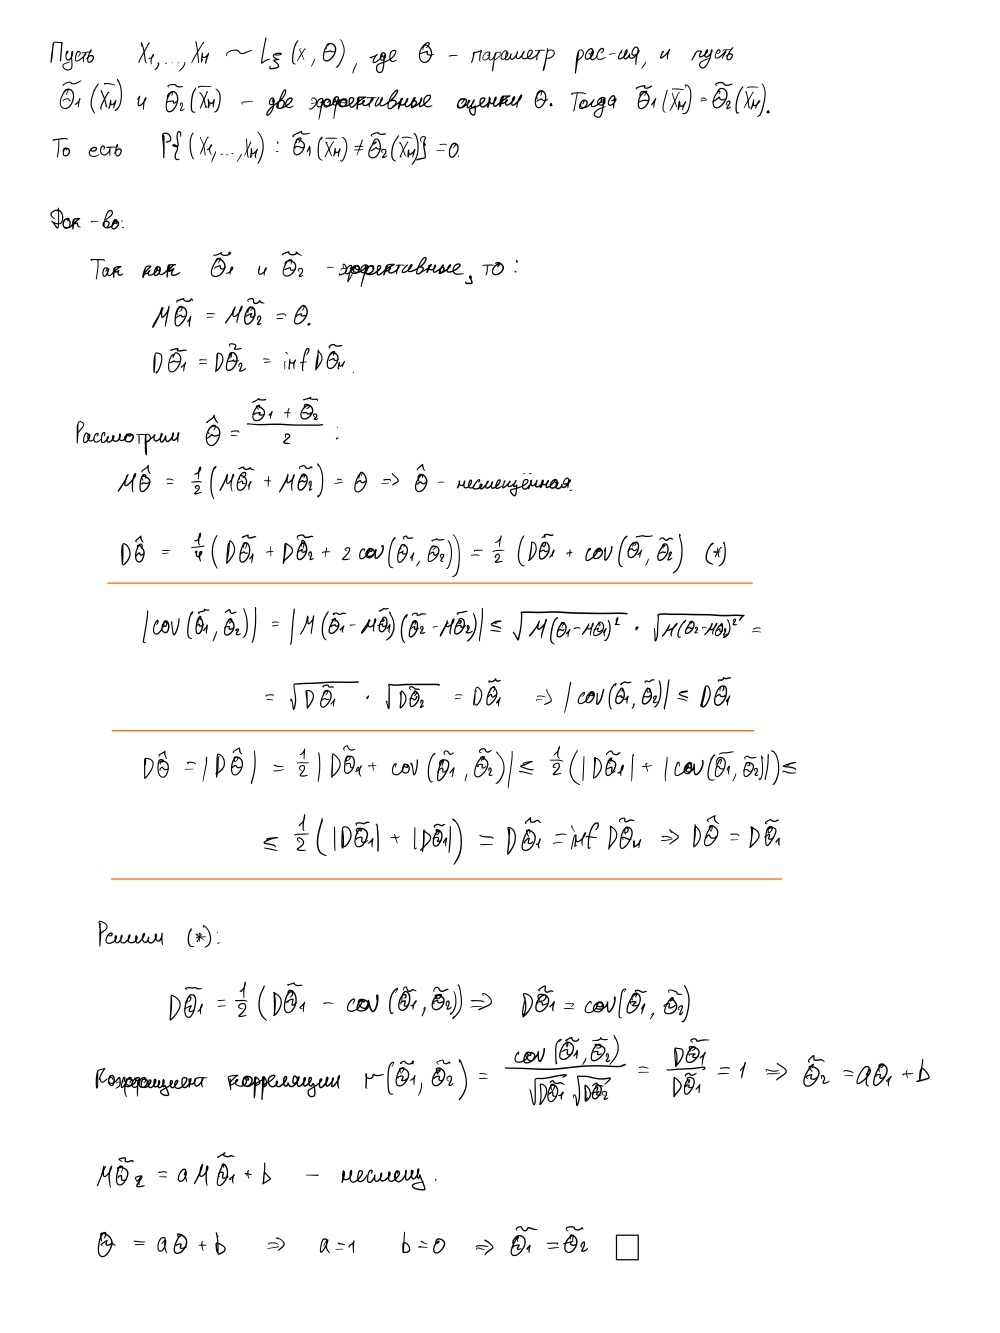 Пусть X₁,...,Xₙ ~ L_ξ(x, θ), где θ - параметр рас-ия, и пусть
θ̃₁(X̄ₙ) и θ̃₂(X̄ₙ) - две эффективные оценки θ. Тогда θ̃₁(X̄ₙ) = θ̃₂(X̄ₙ).
То есть P{(X₁,...,Xₙ) : θ̃₁(X̄ₙ) ≠ θ̃₂(X̄ₙ)} = 0.
Док-во:
Так как θ̃₁ и θ̃₂ - эффективные, то :
Mθ̃₁ = Mθ̃₂ = θ.
Dθ̃₁ = Dθ̃₂ = inf Dθ̃ₙ.
Рассмотрим θ̂ = (θ̃₁ + θ̃₂)/2 :
Mθ̂ = 1/2 (Mθ̃₁ + Mθ̃₂) = θ => θ̂ - несмещённая.
Dθ̂ = 1/4 (Dθ̃₁ + Dθ̃₂ + 2 cov(θ̃₁, θ̃₂)) = 1/2 (Dθ̃₁ + cov(θ̃₁, θ̃₂) (*)
|cov(θ̃₁, θ̃₂)| = |M(θ̃₁ - Mθ̃₁)(θ̃₂ - Mθ̃₂)| ≤ √(M(θ₁ - Mθ̃₁)²) · √(M(θ₂ - Mθ₂)²) =
= √(Dθ̃₁) · √(Dθ̃₂) = Dθ̃₁ => |cov(θ̃₁, θ̃₂)| ≤ Dθ̃₁
Dθ̂ = |Dθ̂| = 1/2 |Dθ̃₁ + cov(θ̃₁, θ̃₂)| ≤ 1/2 (|Dθ̃₁| + |cov(θ̃₁, θ̃₂)|) ≤
≤ 1/2 (|Dθ̃₁| + |Dθ̃₁|) = Dθ̃₁ = inf Dθ̃ₙ => Dθ̂ = Dθ̃₁
Решим (*):
Dθ̃₁ = 1/2 (Dθ̃₁ - cov(θ̃₁, θ̃₂)) => Dθ̃₁ = cov(θ̃₁, θ̃₂)
Коэффициент корреляции r(θ̃₁, θ̃₂) = cov(θ̃₁, θ̃₂)/(√Dθ̃₁ √Dθ̃₂) = Dθ̃₁/Dθ̃₁ = 1 => θ̃₂ = aθ₁ + b
Mθ̃₂ = aMθ̃₁ + b - несмещ.
θ = aθ + b => a=1 b=0 => θ̃₁ = θ̃₂ □